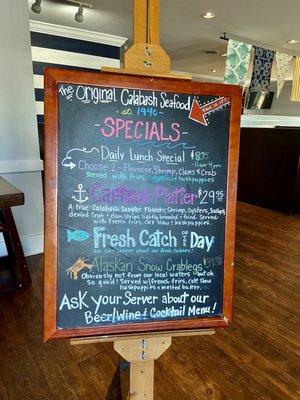 Special
The Original Calabash Seafood
at. 1940
SPECIALS
Daily Lunch Special $8.75
11am-4pm
Choose 2 - Flounder, Shrimp, Clams & Crabs
Served with fries, coleslaw & hushpuppies
Captains Platter $29.95
A true Calabash Seafood Flounder, Shrimp, Oysters, Scallops
deviled crab & clam strips lightly breaded & fried. Served
with fries, Cole slaw & hushpuppies.
Fresh Catch of Day
ask your server about our fresh catches!
Alaskan Snow Crablegs
Obviously not from our local waters but oh
so good! Served w/ french fries, cole slaw
hushpuppies & melted butter.
Ask your Server about our
Beer/Wine & Cocktail Menu!